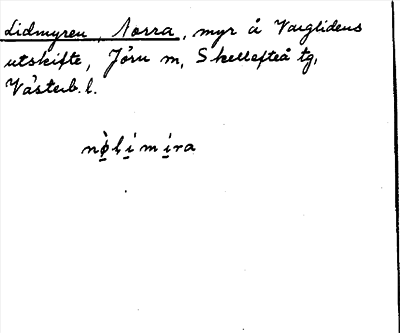 Lidmyren, Norra, myr å Varglidens
utskifte, Jörn sn, Skellefteå tg,
Västerb. l.
nø̀limíra